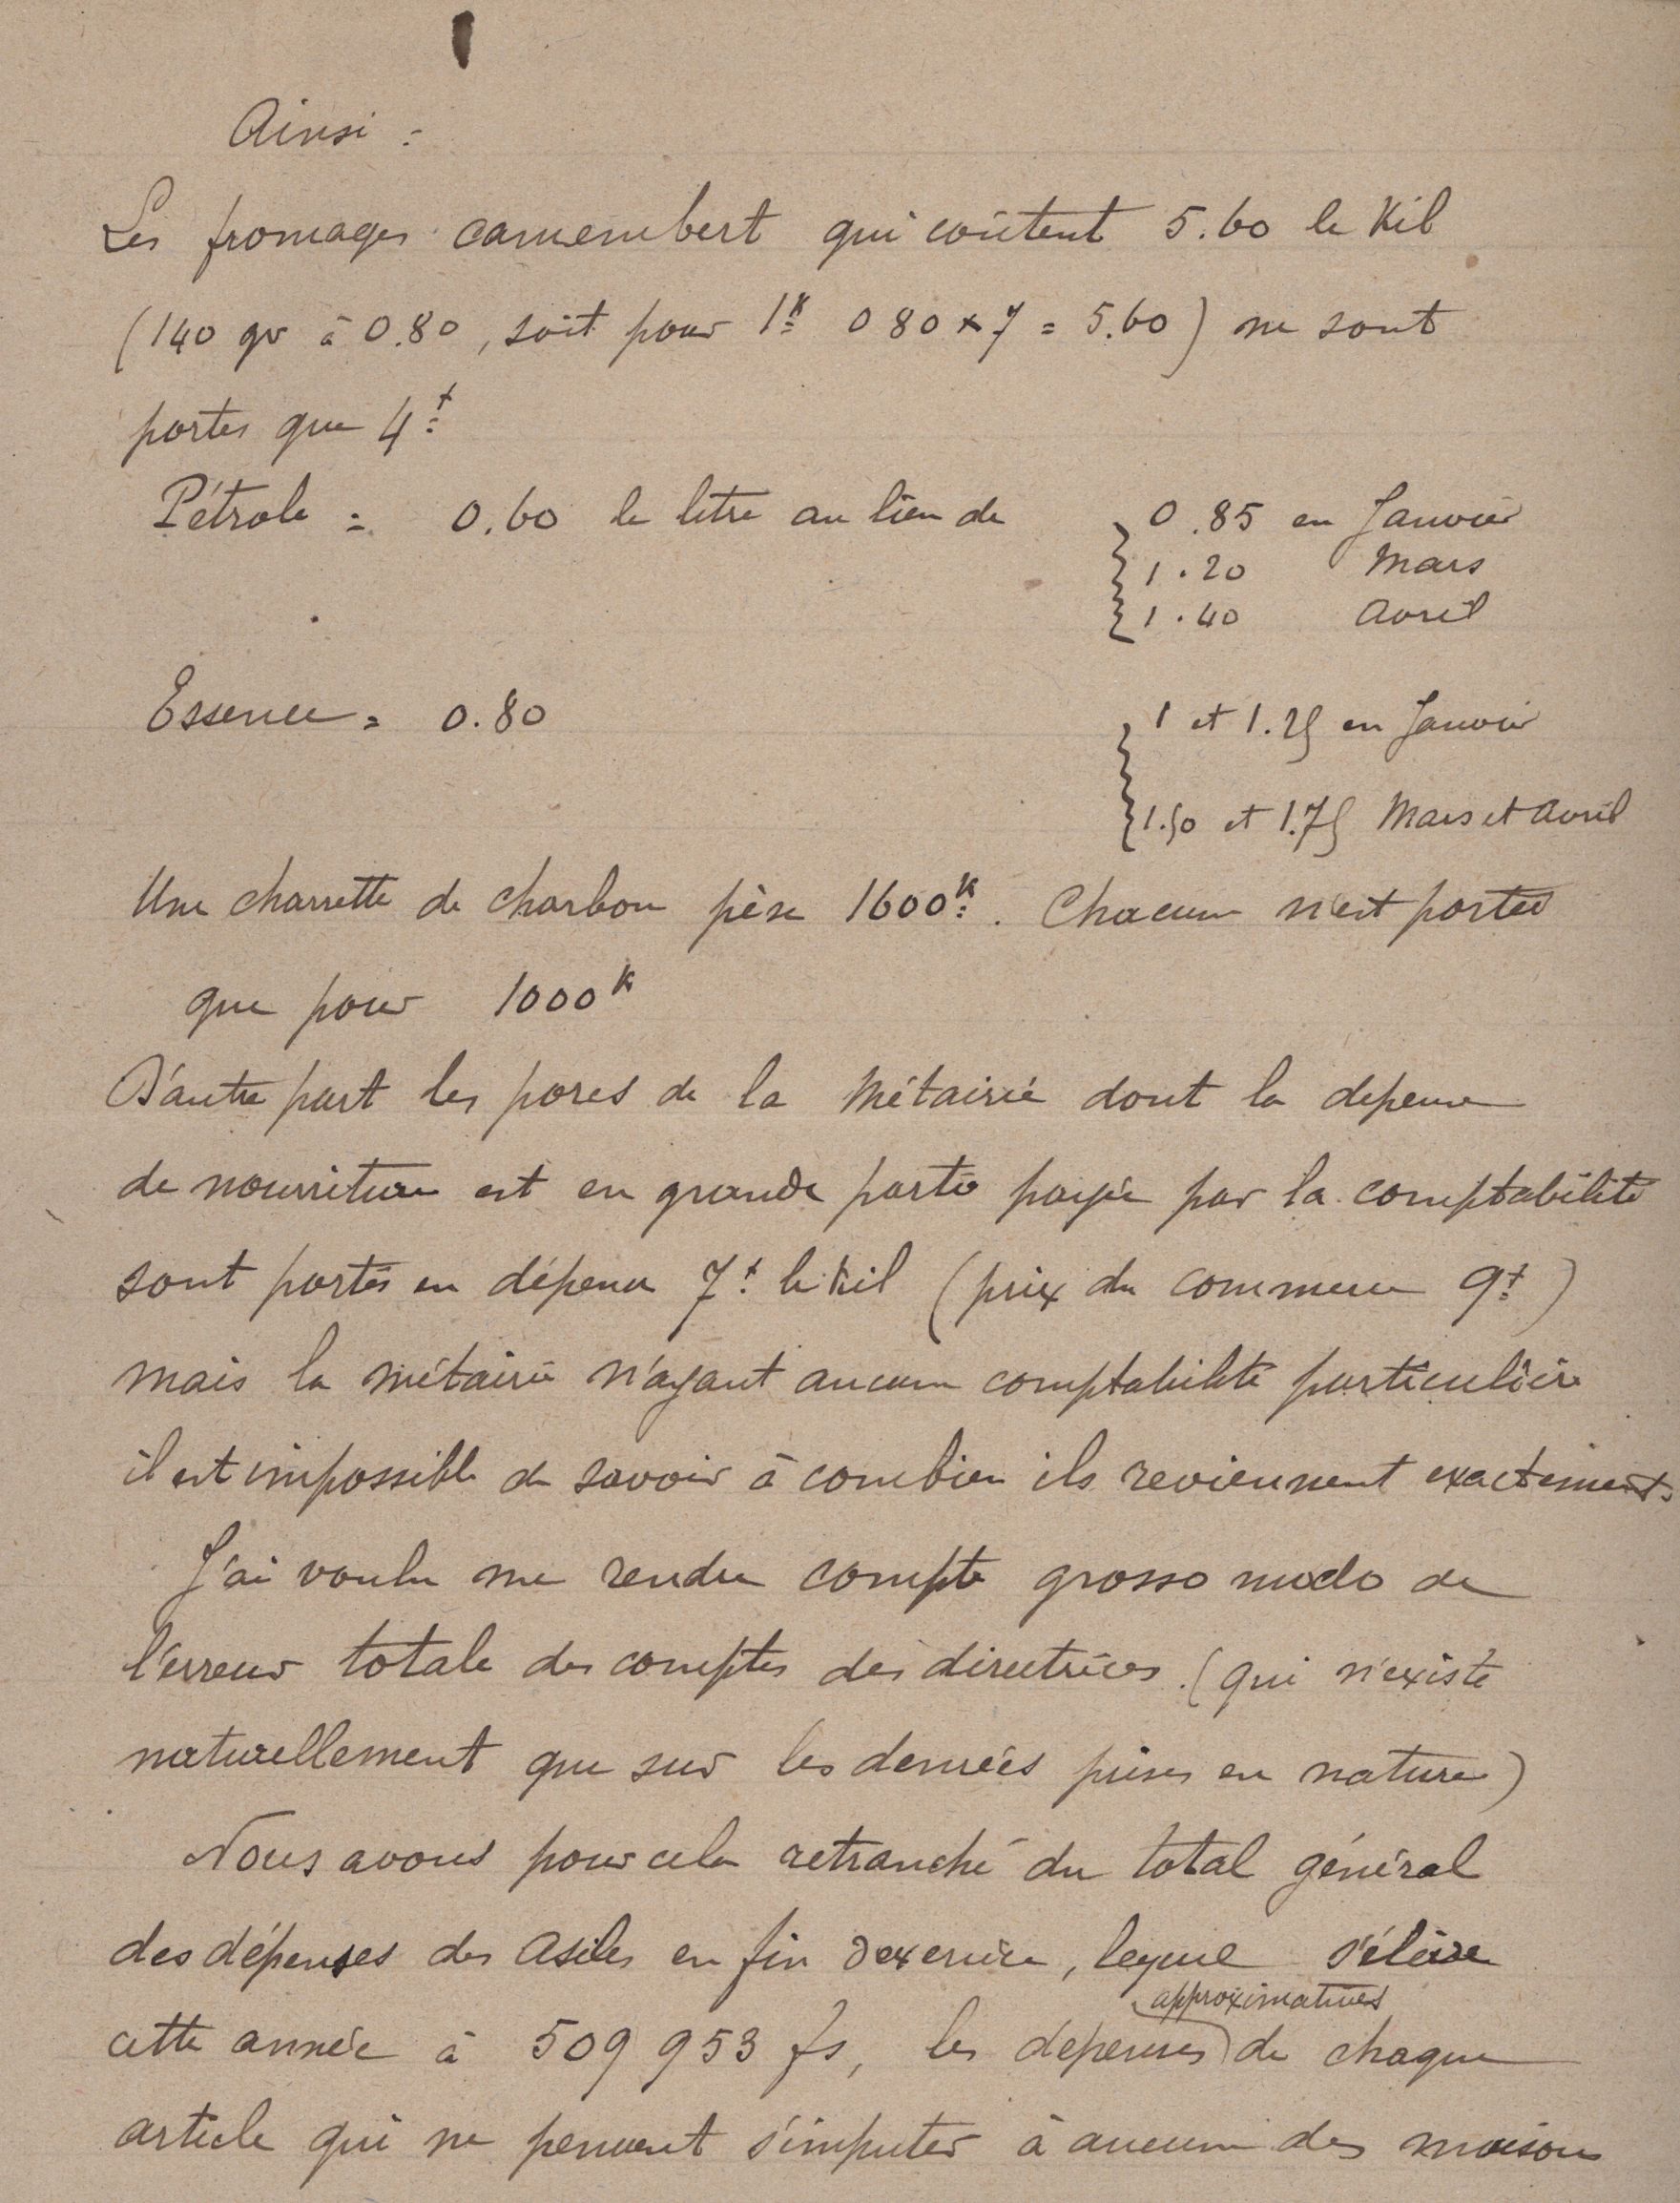 Ainsi :
Les fromages camembert qui coûtent 5.60 le Kil
(140 gr à 0.80, soit pour 1k 0 80 x 7 = 5.60) ne sont
portés que 4f
Pétrole = 0.60 le litre au lieu de { 0.85 en Janvier
1.20 Mars
1.40 Avril
Essence = 0.80 { 1 et 1.25 en Janvier
1.50 et 1.75 Mars et Avril
Une charrette de charbon pèse 1600k. Chacune n'est portée
que pour 1000k
D'autre part les porcs de la Métairie dont la dépense
de nourriture est en grande partie payée par la comptabilité
sont portés en dépense 7f le kil (prix du commerce 9f)
mais la métairie n'ayant aucune comptabilité particulière
il est impossible de savoir à combien ils reviennent exactement.
J'ai voulu me rendre compte grosso modo de
l'erreur totale des comptes des directrices. (qui n'existe
naturellement que sur les denrées prises en nature)
Nous avons pour cela retranché du total général
des dépenses des Asiles en fin d'exercice, lequel s'élève
approximatives
cette année à 509 953 fs, les dépenses de chaque
article qui ne peuvent s'imputer à aucune des maisons